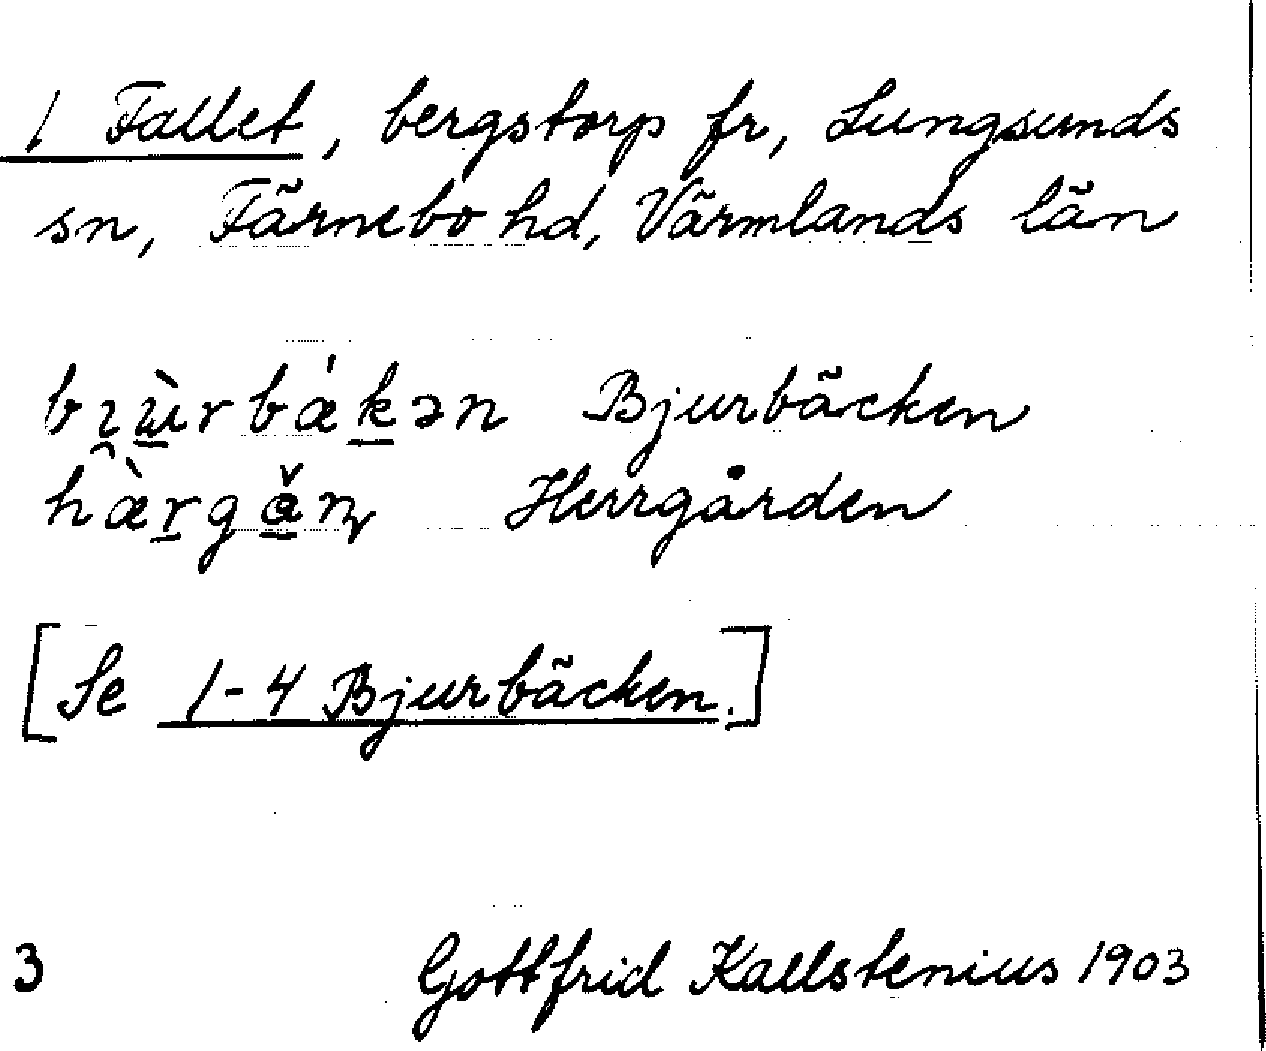 1 Fallet, bergstorp fr, Lungsunds
sn, Färnebo hd, Värmlands län
bı̯ùrbǽkən Bjurbäcken
hæ̀rgǎɳ Herrgården
[Se 1-4 Bjurbäcken.]
3 Gottfrid Kallstenius 1903